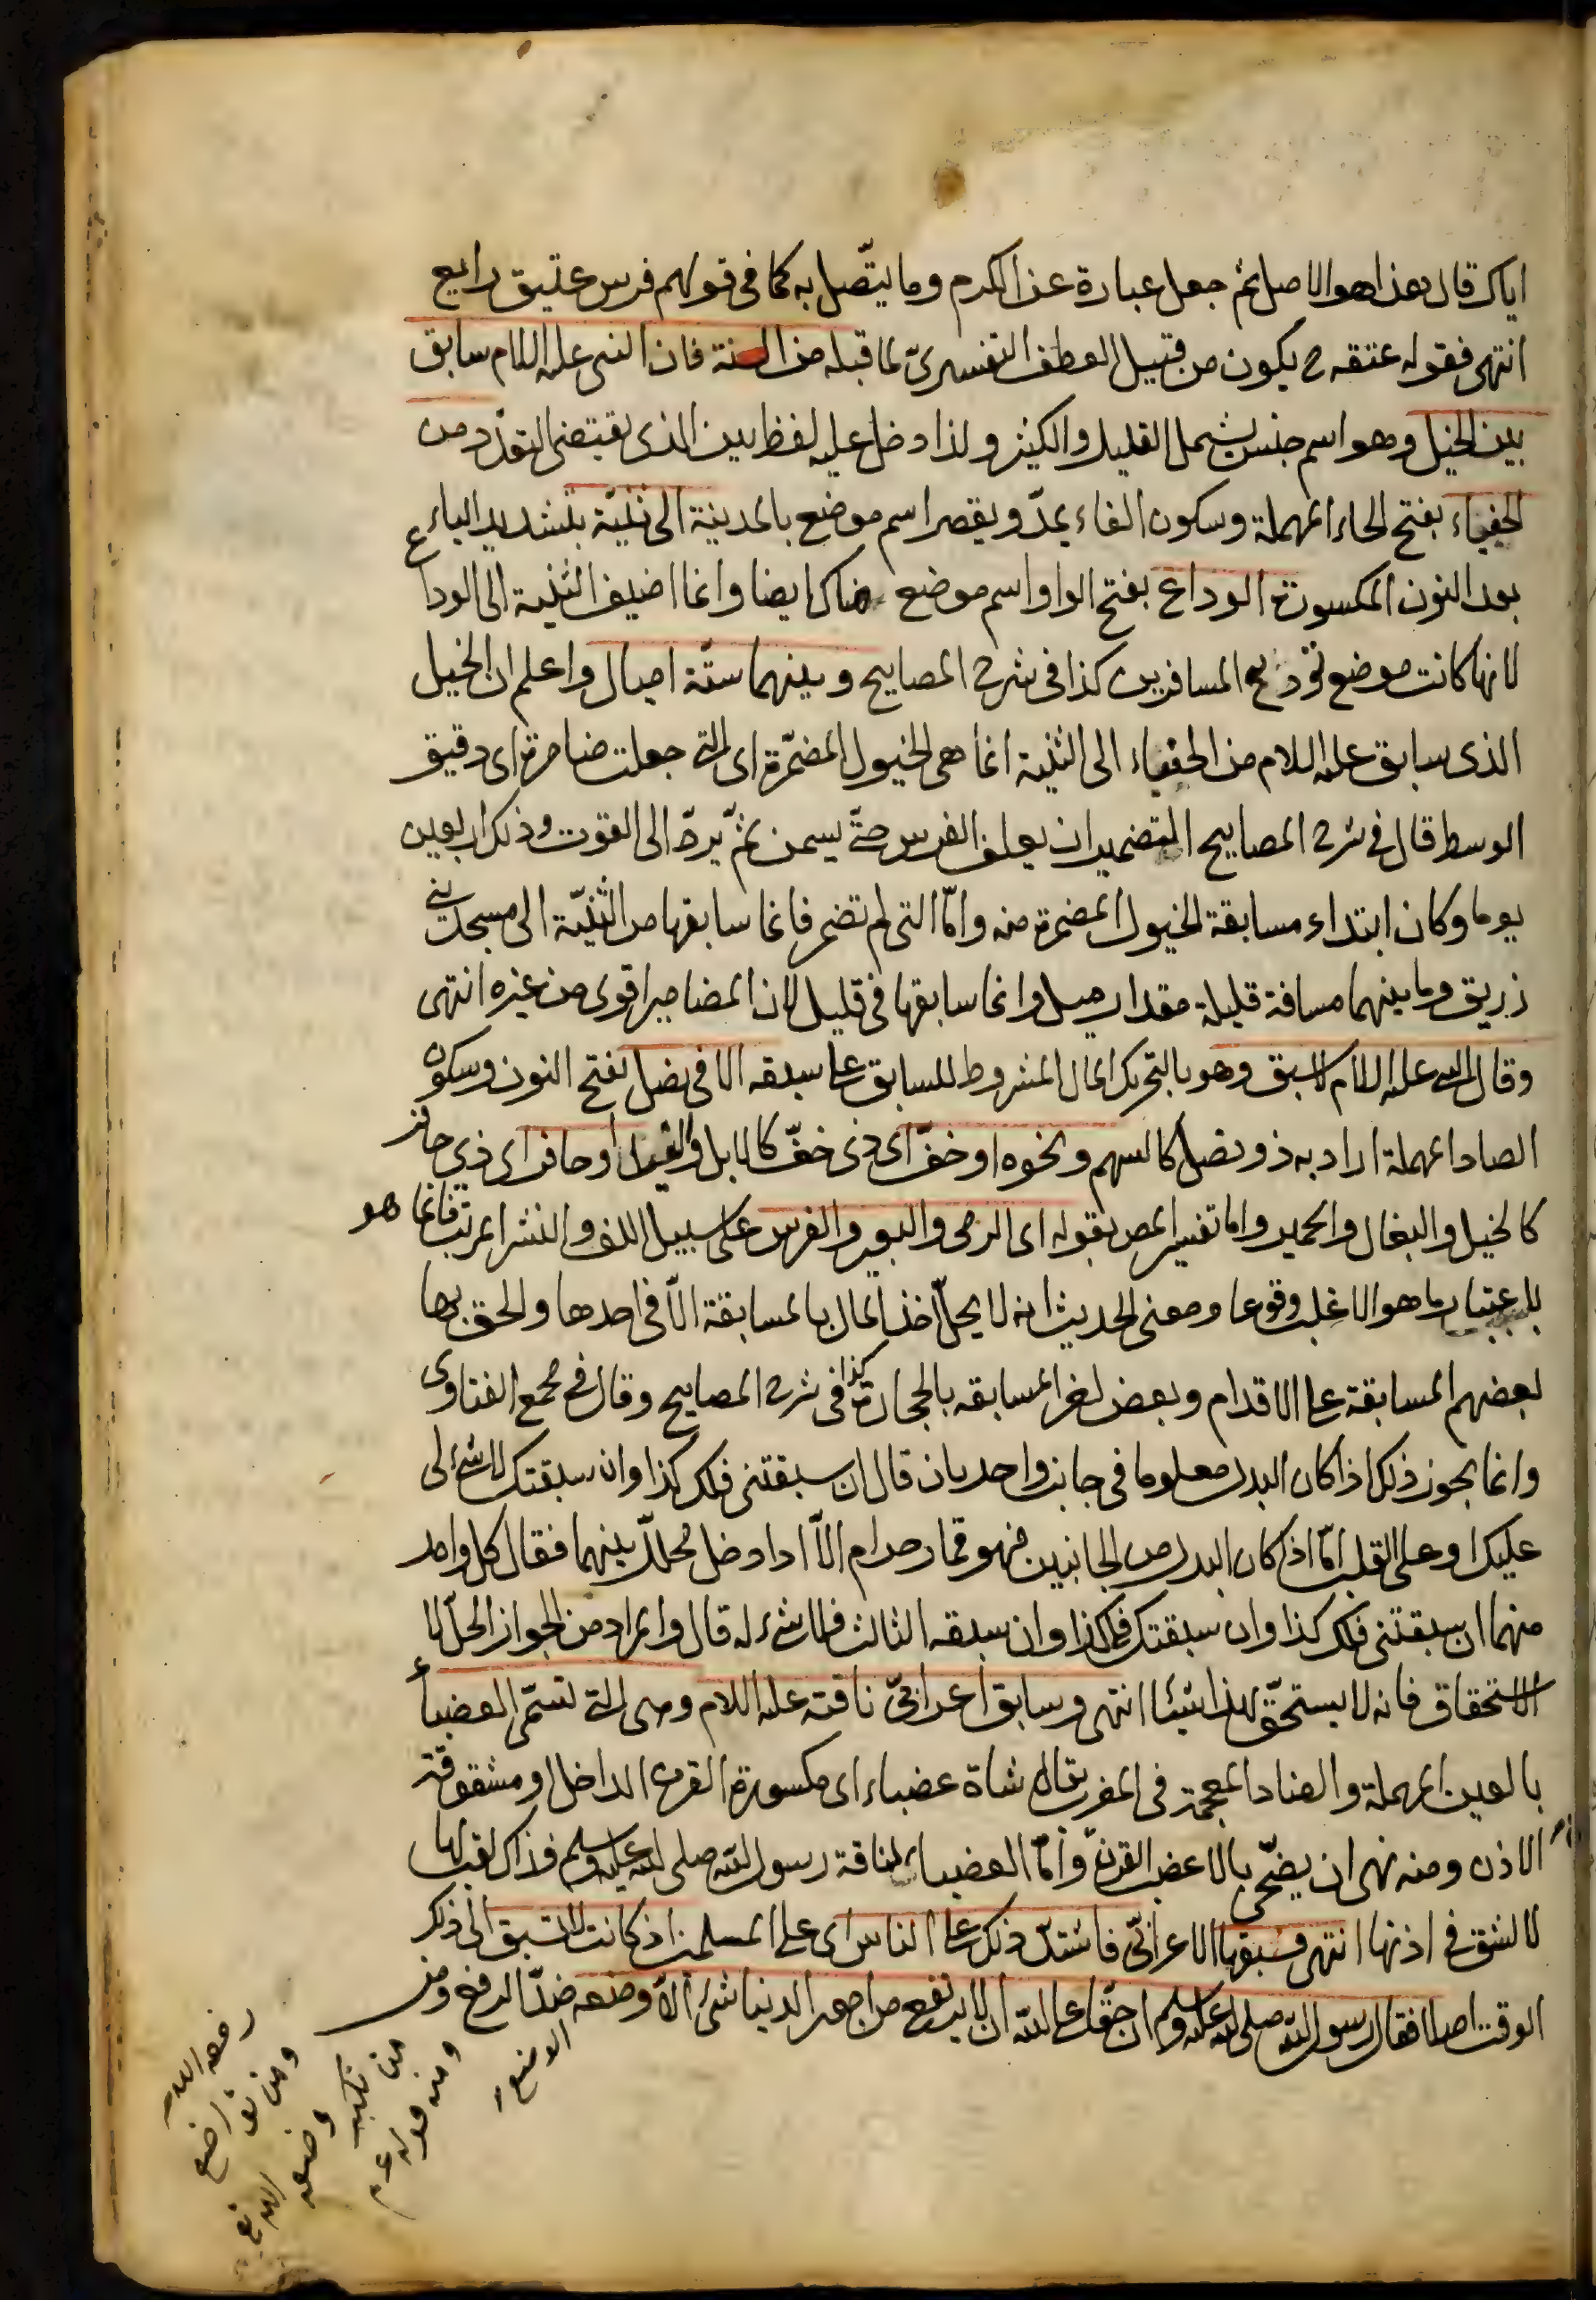 اياك قال هذا هو الاصل ثم جعل عبارة عن الكرم وما يتّصل به كما فى قولهم فرس عتيق رايع
انتهى فقوله عتقه ح يكون من قبيل العطف التفسيرىّ لما قبله من السنة فان النبى عليه السلام سابق
بين الخيل وهو اسم جنس يشمل القليل والكثير ولذا دخل عليه لفظ بين الذى يقتضى التعدّد من
الحفياء بفتح الحاء المهملة وسكون الفاء يمدّ ويقصر اسم موضع بالمدينة الى ثنيّة بتشديد الياء
بعد النون المكسورة الوداع بفتح الواو اسم موضع هناك ايضا وانما اضيف الثنية الى الوداع
لانها كانت موضع توديع المسافرين كذا فى شرح المصابيح وبينهما ستّة اميال واعلم ان الخيل
الذى سابق عليه السلام من الحفياء الى الثنية انما هى الخيول المضمّرة اى التى جعلت ضامرة اى دقيق
الوسط قال فى شرح المصابيح التضمير ان يعلف الفرس حتّى يسمن ثمّ يردّ الى القوت وذلك اربعين
يوما وكان ابتداء مسابقة الخيول المضمرة منه وامّا التى لم تضمر فانما سابقها من الثنيّة الى مسجد بنى
زريق وما بينهما مسافة قليلة مقدار ميل وانما سابقها فى قليل لان المضامير اقوى من غيره انتهى
وقال النبى عليه السلام لا سبق وهو بالتحريك المال المشروط للسابق على سبقه الا فى نصل بفتح النون وسكون
الصاد المهملة اراد به ذو نصل كالسهم ونحوه او خفّ اى ذى خفّ كالابل والفيل او حافر اى ذى حافر
كالخيل والبغال والحمير واما تفسير المص بقوله اى الرمى والبعير والفرس على سبيل اللف والنشر المرتب فانما هو
باعتبار ما هو الاغلب وقوعا ومعنى الحديث انه لا يحلّ اخذ المال بالمسابقة الّا فى احدها والحق بها
بعضهم المسابقة على الاقدام وبعض اخر المسابقه بالحجارة كذا فى شرح المصابيح وقال فى مجمع الفتاوى
وانما يجوز ذلك اذا كان البدل معلوما فى جانب واحد بان قال ان سبقتنى فلك كذا وان سبقتك لا شئ لى
عليك او على القلب امّا اذا كان البدل من الجانبين فهو قمار حرام الّا اذا ادخل محللّا بينهما فقال كل واحد
منهما ان سبقتنى فلك كذا وان سبقتك فلى كذا وان سبقه الثالث فلا شئ له قال والمراد من الجواز الحلّ لا
الاستحقاق فانه لا يستحقّ بهذا شيئا انتهى وسابق اعرابىّ ناقته عليه السلام وهى التى تسمّى العضباء
بالعين المهملة والضاد المعجمة فى المغرب يقال شاة عضباء اى مكسورة القرن الداخل او مشقوقة
الاذن ومنه نهى ان يضحّى بالاعضب القرن وامّا العضباء لناقة رسول اللّه صلى الله عليه وسلم فذاك لقب لها
لا لشق فى اذنها انتهى فسبقها الاعرابىّ فاشتدّ ذلك على الناس اى على المسلمين اذ كانت لا تسبق الى ذلك
الوقت اصلا فقال رسول اللّه صلى الله عليه وسلم ان حقّا على اللّه ان لا يرتفع من امر الدنيا شئ الّا وضعه ضدّ الرفع ومن
الاوضع
ومنه قوله عم
من تكبر
وضعه الله تع
ومن تواضع
رفعه الله